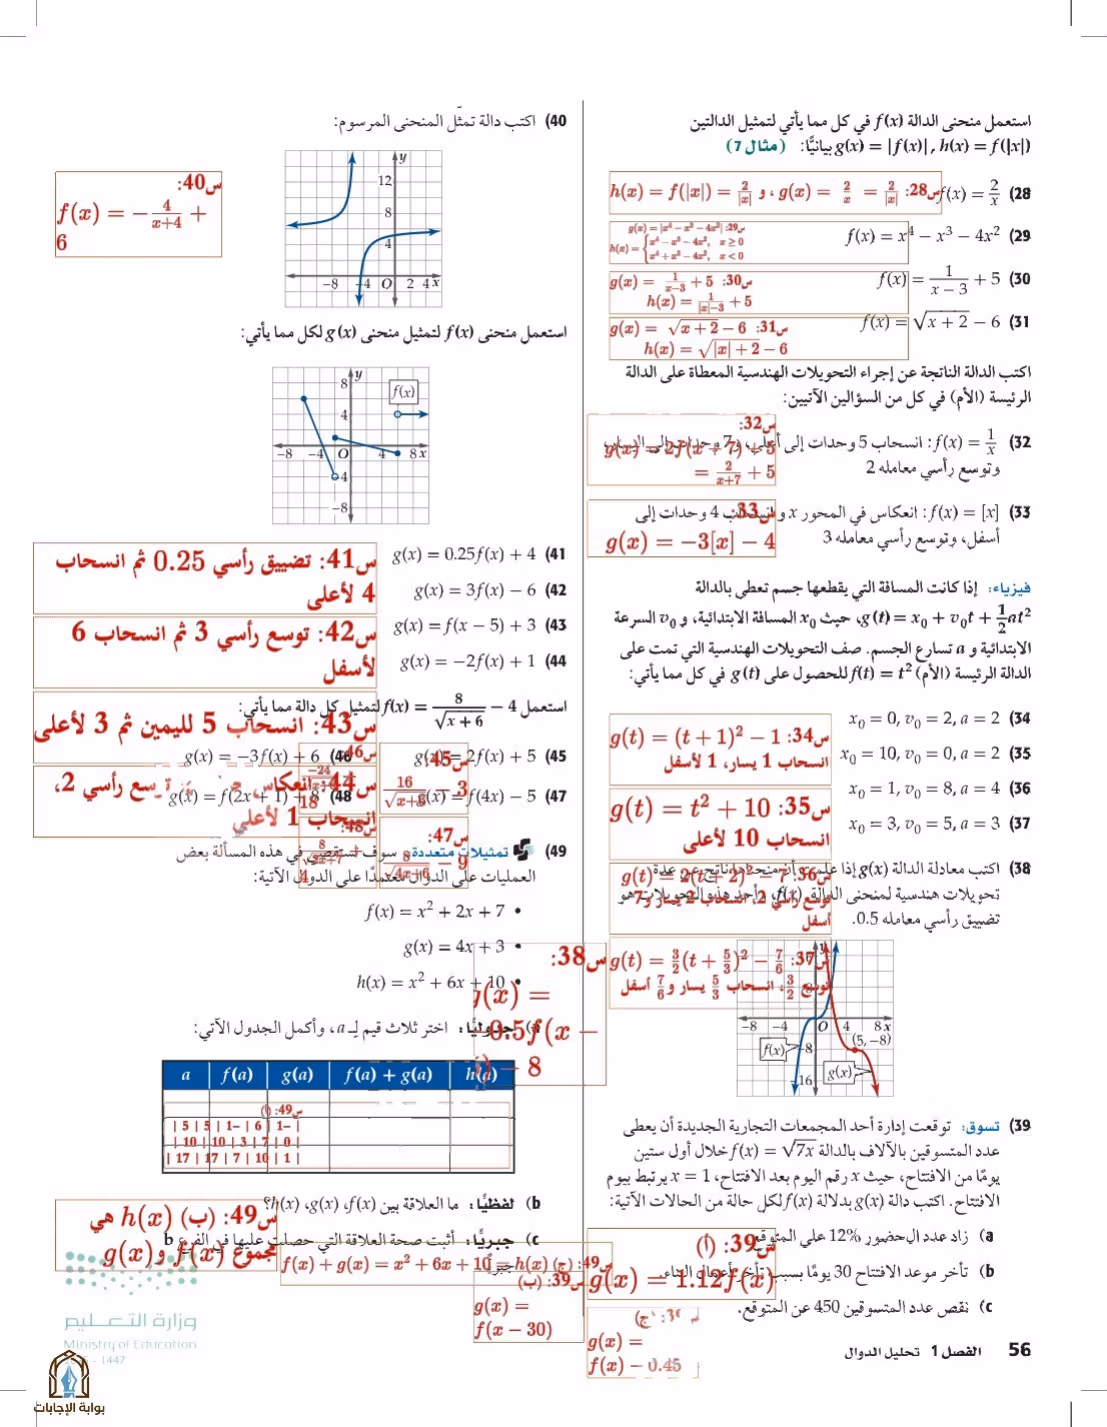 استعمل منحنى الدالة f(x) في كل مما يأتي لتمثيل الدالتين
g(x) = |f(x)| , h(x) = f(|x|) بيانيًّا: (مثال 7)
28) f(x) = 2/x
س28: g(x) = 2/x = 2/|x| ، و h(x) = f(|x|) = 2/|x|
29) f(x) = x⁴ − x³ − 4x²
س29: g(x) = |x⁴ − x³ − 4x²|
h(x) = { x⁴ − x³ − 4x², x ≥ 0
x⁴ + x³ − 4x², x < 0
30) f(x) = 1/(x − 3) + 5
س30: g(x) = 1/(x−3) + 5
h(x) = 1/(|x|−3) + 5
31) f(x) = √(x + 2) − 6
س31: g(x) = √(x + 2) − 6
h(x) = √(|x| + 2) − 6
اكتب الدالة الناتجة عن إجراء التحويلات الهندسية المعطاة على الدالة
الرئيسة (الأم) في كل من السؤالين الآتيين:
32) f(x) = 1/x : انسحاب 5 وحدات إلى أعلى، و 7 وحدات إلى اليسار،
وتوسع رأسي معامله 2
س32:
g(x) = 2f(x + 7) + 5
= 2/(x+7) + 5
33) f(x) = [x] : انعكاس في المحور x وانسحاب 4 وحدات إلى
أسفل، وتوسع رأسي معامله 3
س33:
g(x) = −3[x] − 4
فيزياء: إذا كانت المسافة التي يقطعها جسم تعطى بالدالة
g(t) = x₀ + v₀t + ½at²، حيث x₀ المسافة الابتدائية، و v₀ السرعة
الابتدائية و a تسارع الجسم. صف التحويلات الهندسية التي تمت على
الدالة الرئيسة (الأم) f(t) = t² للحصول على g(t) في كل مما يأتي:
34) x₀ = 0, v₀ = 2, a = 2
35) x₀ = 10, v₀ = 0, a = 2
36) x₀ = 1, v₀ = 8, a = 4
37) x₀ = 3, v₀ = 5, a = 3
س34: g(t) = (t + 1)² − 1
انسحاب 1 يسار، 1 لأسفل
س35: g(t) = t² + 10
انسحاب 10 لأعلى
س36: g(t) = 2(t + 2)² − 7
توسع رأسي 2، انسحاب 2 يسار و 7
أسفل
س37: g(t) = 3/2(t + 5/3)² − 7/6
توسع 3/2، انسحاب 5/3 يسار و 7/6 أسفل
38) اكتب معادلة الدالة g(x) إذا علمت أن منحناها ناتج عن عدة
تحويلات هندسية لمنحنى الدالة f(x)، وأحد هذه التحويلات هو
تضييق رأسي معامله 0.5.
−8 −4 O 4 8 x
8
−8
−16
(5, −8)
f(x)
g(x)
س38:
g(x) =
0.5f(x −
− 8
39) تسوق: توقعت إدارة أحد المجمعات التجارية الجديدة أن يعطى
عدد المتسوقين بالآلاف بالدالة f(x) = √7x خلال أول ستين
يومًا من الافتتاح، حيث x رقم اليوم بعد الافتتاح، x = 1 يرتبط بيوم
الافتتاح. اكتب دالة g(x) بدلالة f(x) لكل حالة من الحالات الآتية:
a) زاد عدد الحضور 12% على المتوقع.
b) تأخر موعد الافتتاح 30 يومًا بسبب تأخر أعمال البناء.
c) نقص عدد المتسوقين 450 عن المتوقع.
س39: (أ)
g(x) = 1.12f(x)
س39: (ب)
g(x) =
f(x − 30)
(ج)
g(x) =
f(x) − 0.45
56 الفصل 1 تحليل الدوال
40) اكتب دالة تمثّل المنحنى المرسوم:
y
12
8
4
−8 −4 O 2 4 x
س40:
f(x) = − 4/(x+4) +
6
استعمل منحنى f(x) لتمثيل منحنى g(x) لكل مما يأتي:
y
8
4
f(x)
−8 −4 O 4 8 x
−4
−8
41) g(x) = 0.25f(x) + 4
42) g(x) = 3f(x) − 6
43) g(x) = f(x − 5) + 3
44) g(x) = −2f(x) + 1
س41: تضييق رأسي 0.25 ثم انسحاب
4 لأعلى
س42: توسع رأسي 3 ثم انسحاب 6
لأسفل
س43: انسحاب 5 لليمين ثم 3 لأعلى
س44: انعكاس، توسع رأسي 2،
انسحاب 1 لأعلى
استعمل f(x) = 8/√(x + 6) − 4 لتمثيل كل دالة مما يأتي:
45) g(x) = 2f(x) + 5
46) g(x) = −3f(x) + 6
47) g(x) = f(4x) − 5
48) g(x) = f(2x + 1) + 8
س45:
16/√(x+6) − 3
س46:
−24
18
س47:
8/√(4x+6) − 9
س48:
8
4
49) تمثيلات متعددة: سوف تستقصي في هذه المسألة بعض
العمليات على الدوال معتمدًا على الدوال الآتية:
• f(x) = x² + 2x + 7
• g(x) = 4x + 3
• h(x) = x² + 6x + 10
a) جدوليًّا: اختر ثلاث قيم لِـ a، وأكمل الجدول الآتي:
a f(a) g(a) f(a) + g(a) h(a)
س49: (أ)
| 5 | 5 | −1 | 6 | −1 |
| 10 | 10 | 3 | 7 | 0 |
| 17 | 17 | 7 | 10 | 1 |
b) لفظيًّا: ما العلاقة بين f(x)، g(x)، h(x)؟
c) جبريًّا: أثبت صحة العلاقة التي حصلت عليها في الفرع b
جبريًّا.
س49: (ب) h(x) هي
مجموع f(x) و g(x)
س49: (ج) f(x) + g(x) = x² + 6x + 10 = h(x)
وزارة التعليم
Ministry of Education
- 1447
بوابة الإجابات